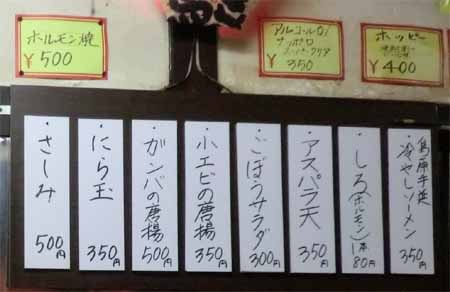 ホルモン焼
¥500
アルコール0%
サッポロ
スーパークリア
350
ホッピー
¥400
島原手延
冷やしソーメン
350円
しろ(ホルモン)1本
80円
アスパラ天
350円
ごぼうサラダ
300円
小エビの唐揚
350円
ガンバの唐揚
500円
にら玉
350円
さしみ
500円